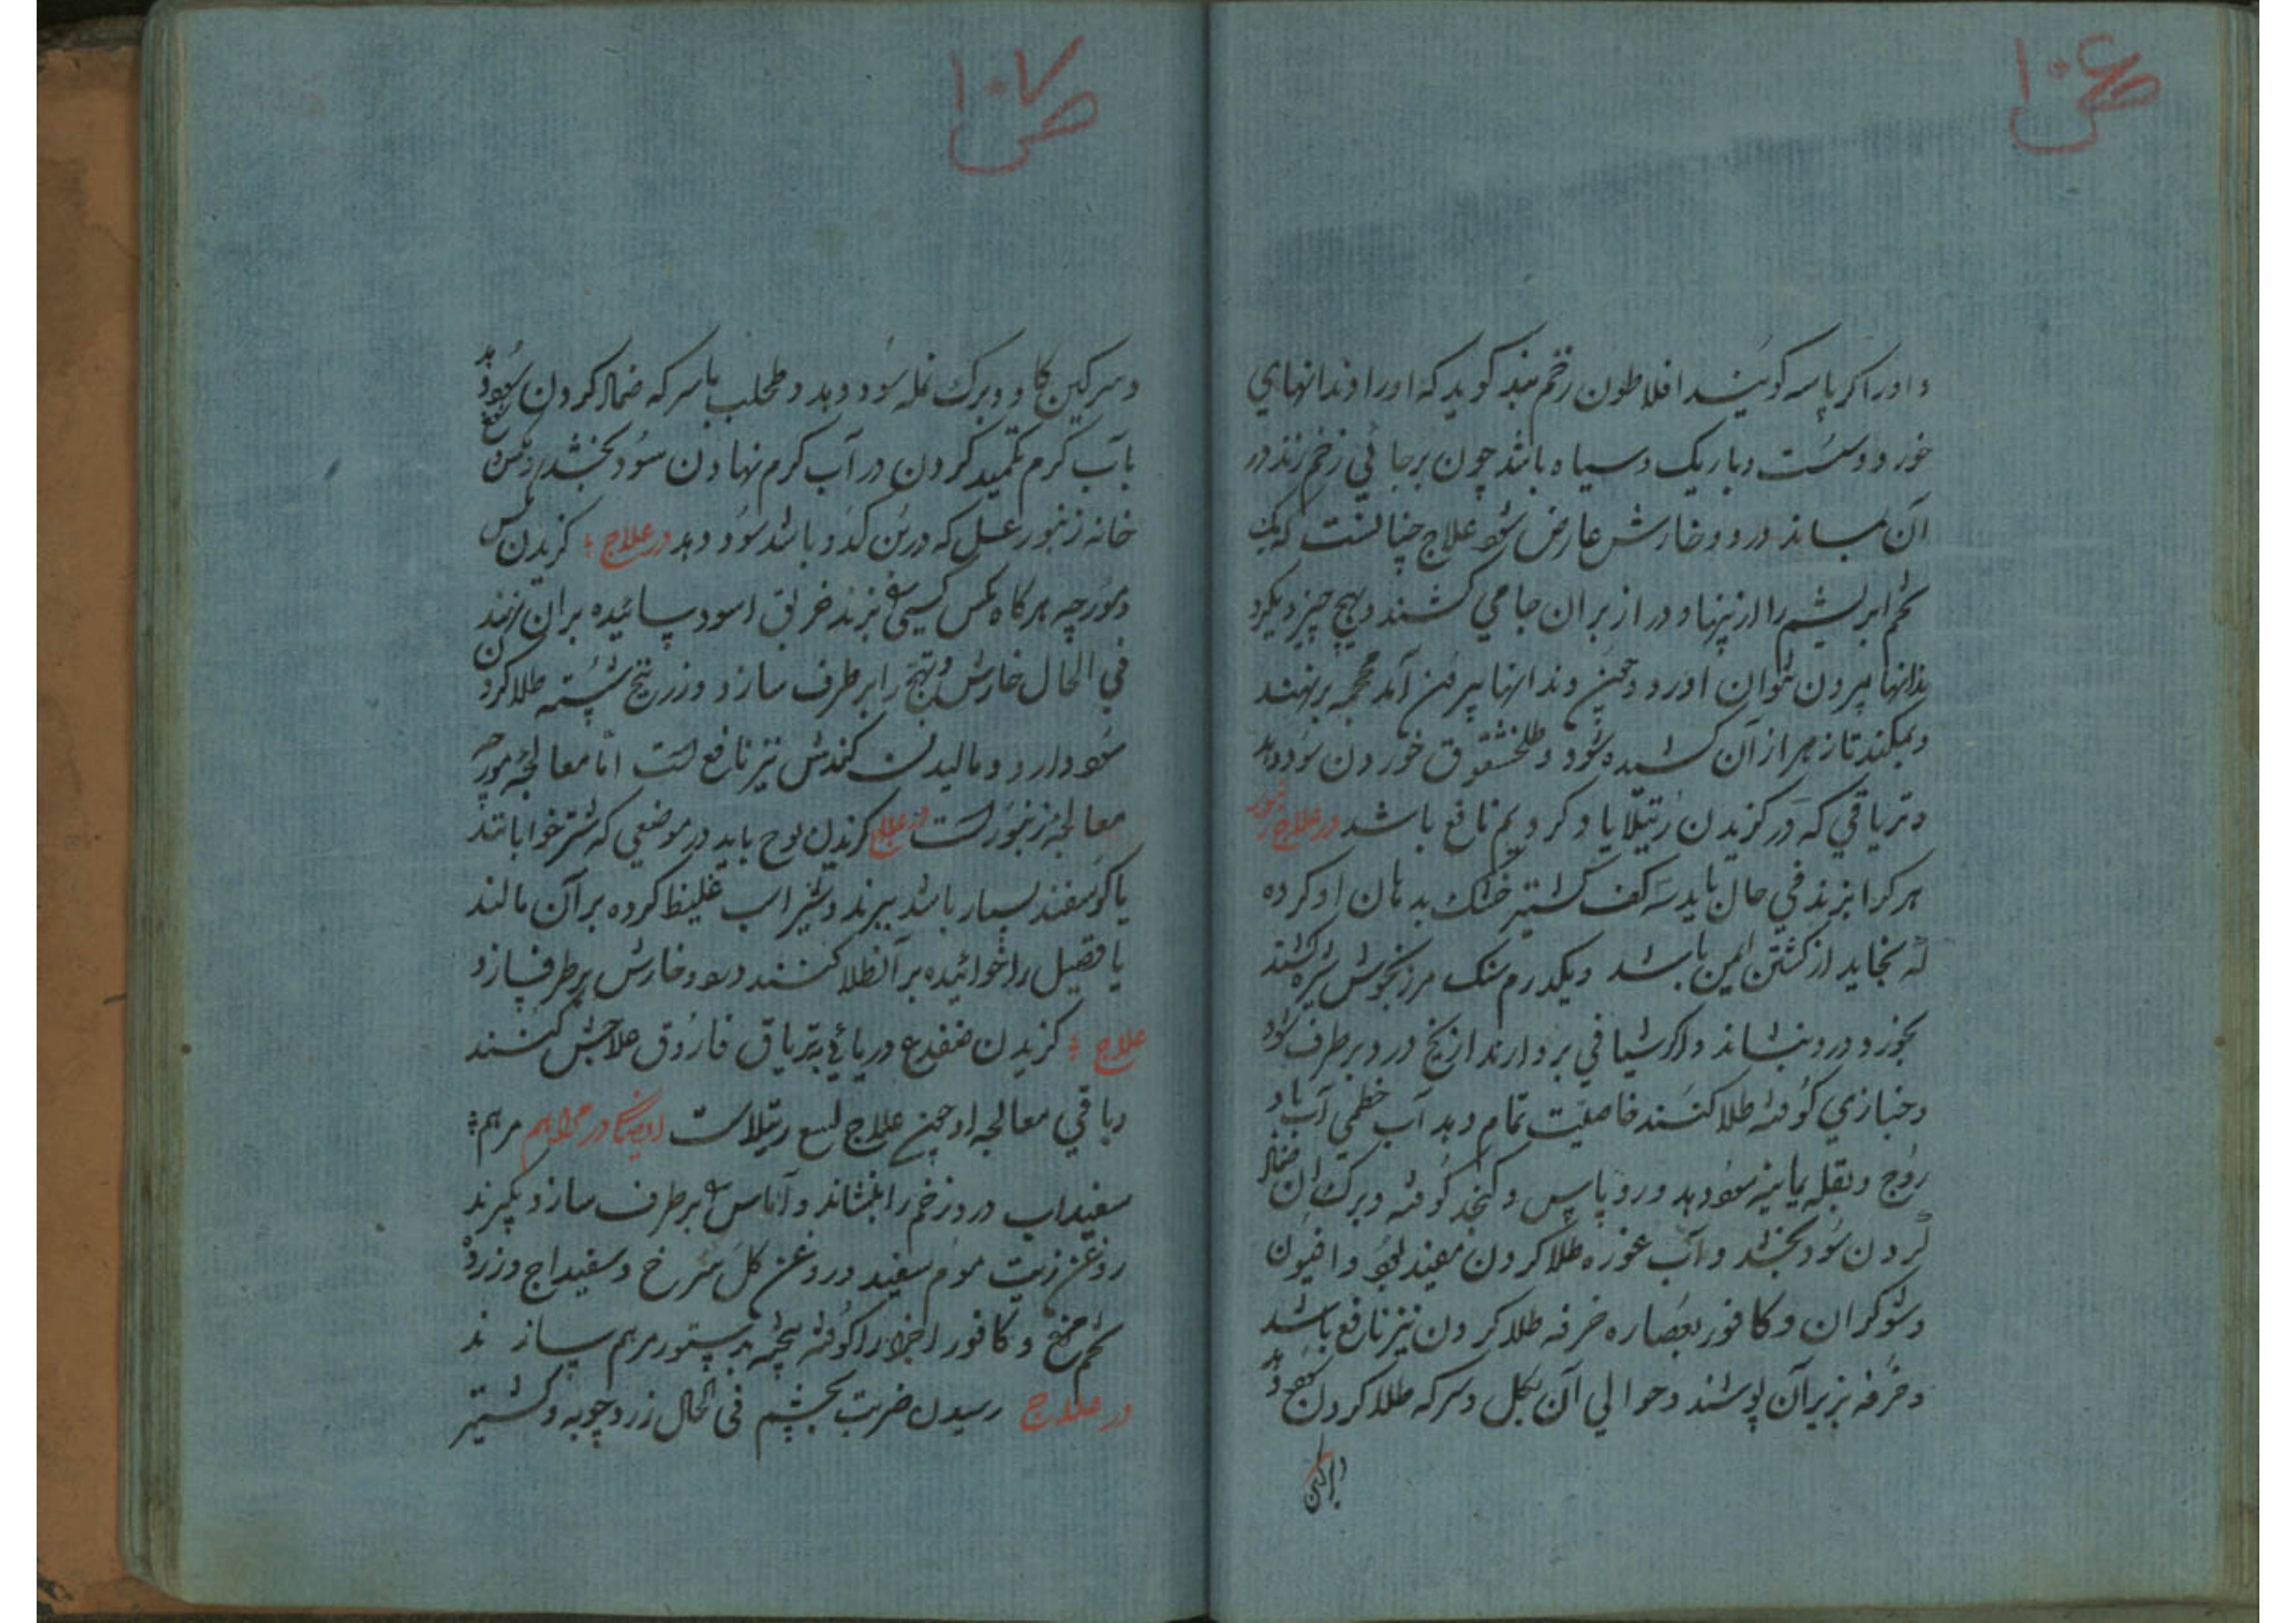 ص ۱۰۶
و اورا کر پاسه کویند افلاطون زخم بند کوید که اورا دندانهای
خورد و سست و باریک و سیاه باشد چون بر جائی زخم زند در
آن بماند درد و خارش عارض شود علاج چنانست که یک
تخم ابریشم را از پهنا و دراز بر ان جا می کشند و بهیچ چیز دیکر
دندانها بیرون نتوان اورد و چون دندانها بیرون آمد محجمه بر نهند
و بمکند تا زهر از آن کشیده شود و طلخشقوق خوردن سود دهد
و تریاقی که در کزیدن رتیلا یاد کردیم نافع باشد در علاج زنبور
هر کرا بزند فی حال باید سه کف کشنیز خشک بدهان او کرده
که بخاید از کشتن ایمن باشد و یکدرم سنک مرزنجوش شیره کشند
بخورد درد بنشاند و اکر شیافی بردارند از یخ درد بر طرف شود
و خبازی کوفته طلا کنند خاصیت تمام دهد آب خطمی آب باد
روج و بقله یمانیه سود دهد و روباپس و کنجد کوفته و برک ان ضماد
کردن سود بخشد و آب غوره طلا کردن مفید بود و افیون
و شوکران و کافور بعصاره خرفه طلا کردن نیز نافع باشد
و خرفه بزیر آن پوشند و حوالی آن بکل و سرکه طلا کردن نفع دهد
و سرکین
ص ۱۰۷
و سرکین کاو و برک نمله سود دهد و طحلب با سرکه ضماد کردن سود دهد
بآب کرم تکمید کردن در آب کرم نهادن سود بخشد
خانه زنبور عسل که در بن کدو باشد سود دهد در علاج کزیدن مکس
و مورچه هر کاه مکس کسی را بزند خربق اسود سائیده بر ان زنند
فی الحال خارش و تهیج را بر طرف سازد و زرنیخ شسته طلا کردن
سود دارد و مالیدن کندش نیز نافع است اما معالجه مورچه
معالجه زنبور است در علاج کزیدن لوح باید در موضعی که شتر خوابانند
یا کوسفند بسیار باشد ببرند و شیر اب غلیظ کرده بر آن مالند
یا فصیل را خوائیده بر آن طلا کنند درد و خارش بر طرف سازد
علاج کزیدن ضفدع دریائی بتریاق فاروق علاجش کنند
و باقی معالجه او چون علاج لسع رتیلاست در مراهم مرهم
سفیداب درد زخم را بنشاند و آماس بر طرف سازد بکیرند
روغن زیت موم سفید و روغن کل سرخ و سفیداج و زرده
تخم مرغ و کافور اجزا را کوفته بیخته بدستور مرهم سازند
در علاج رسیدن ضربت بچشم فی الحال زردچوبه و کشنیز